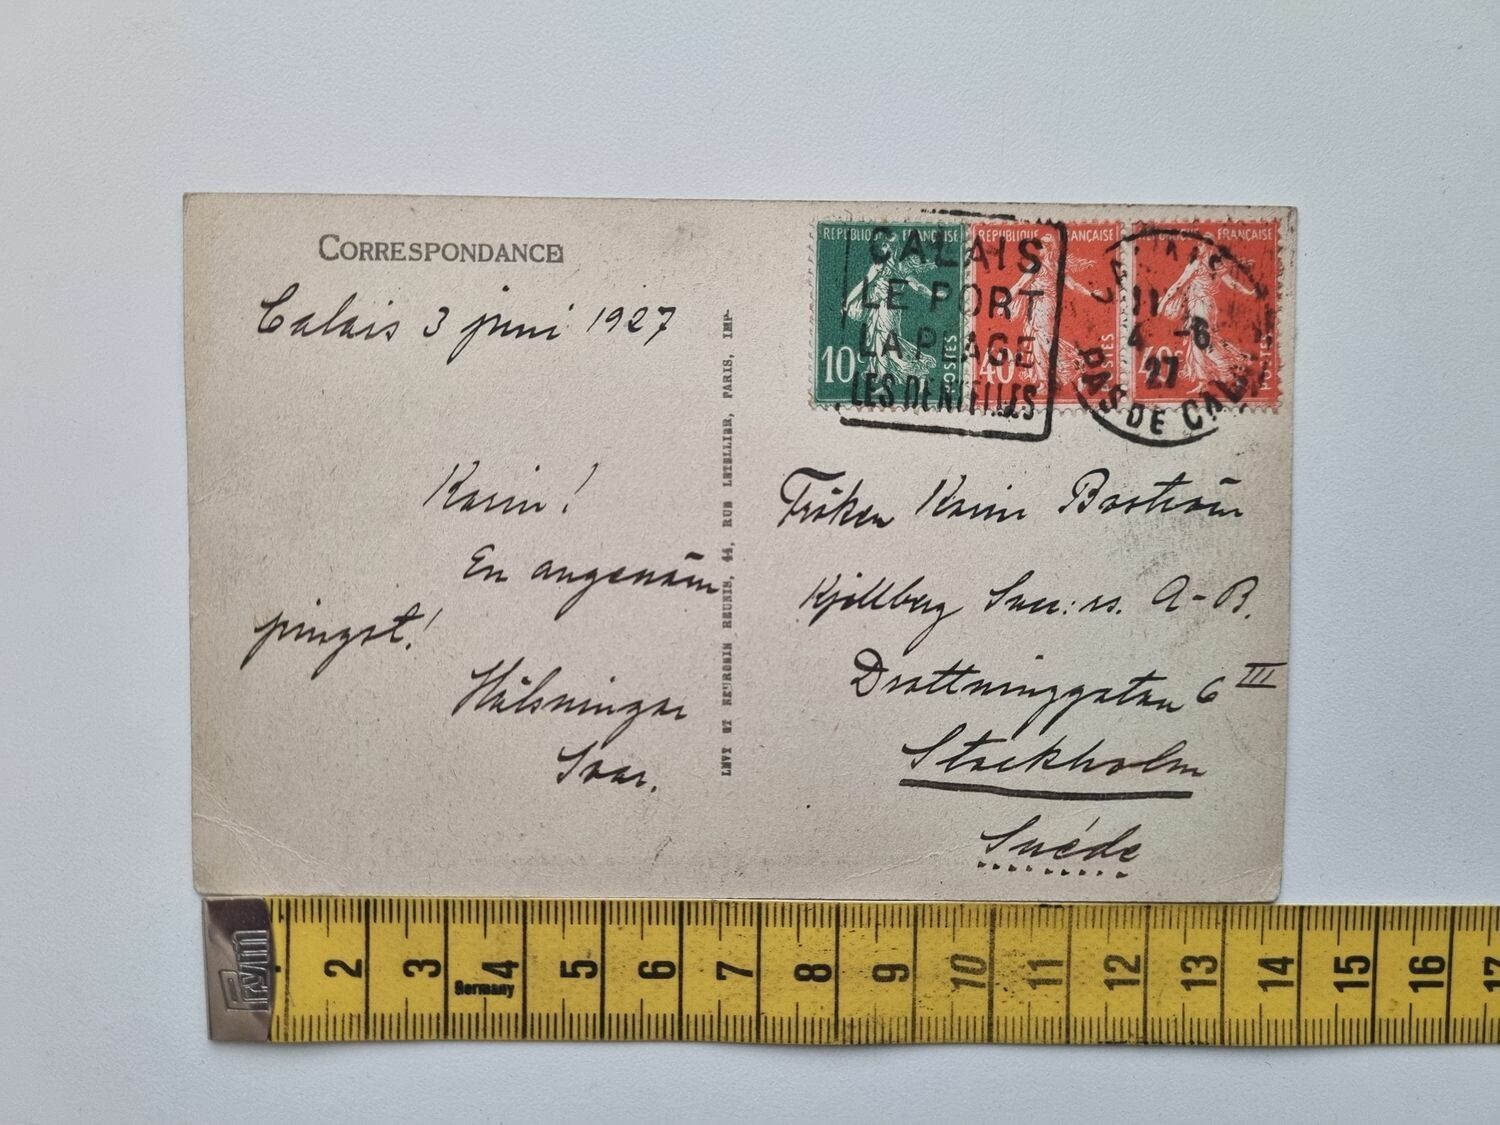 CORRESPONDANCE
Calais 3 juni 1927
Karin!
En angenäm
pingst!
Hälsningar
Ivar.
LEVY ET NEURDEIN REUNIS, 44, RUE LETELLIER, PARIS, IMP.
REPUBLIQUE FRANÇAISE
10c
POSTES
REPUBLIQUE FRANÇAISE
40c
POSTES
REPUBLIQUE FRANÇAISE
40c
POSTES
CALAIS
LE PORT
LA PLAGE
LES DENTELLES
CALAIS
11
4 -6
27
PAS DE CALAIS
Fröken Karin Boström
Kjellberg A-B.
Drottninggatan 6 III
Stockholm
Suéde
Prym
2 3 4 5 6 7 8 9 10 11 12 13 14 15 16 17
Germany